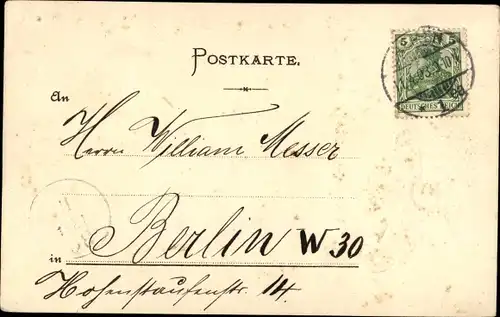 POSTKARTE.
5 5
DEUTSCHES REICH
An
Herrn William Messer
Berlin W 30
in
Hohenstaufenstr. 14.